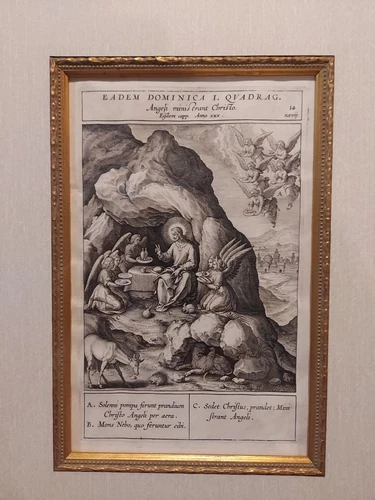 EADEM DOMINICA I. QVADRAG.
Angeli ministrant Christo. 14
Eisdem capp. Anno xxx. xcvij
A. Solenni pompa ferunt prandium
Christo Angeli per aera.
B. Mons Nebo, quo feruntur cibi.
C. Sedet Christus, prandet: Mini-
strant Angeli.